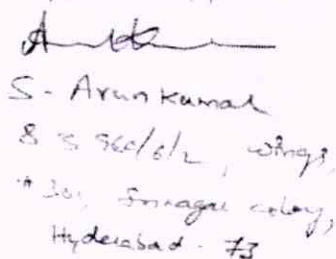 S. Arun Kumar
8 3 960/6/2, wings,
# 301, Srinagar colony,
Hyderabad - 73